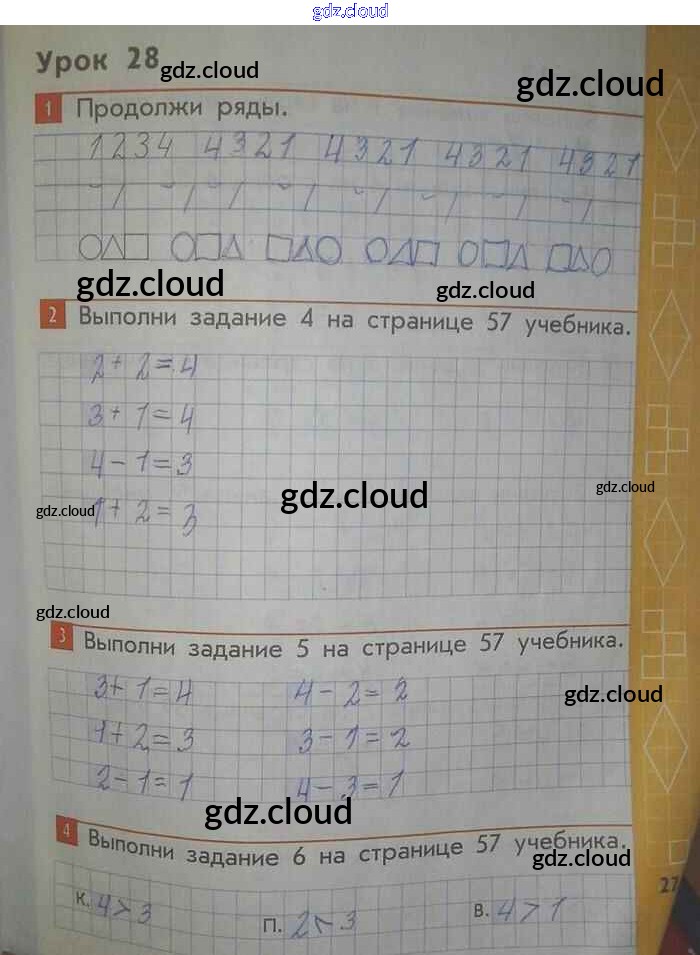 gdz.cloud
Урок 28
gdz.cloud
gdz.cloud
1 Продолжи ряды.
1 2 3 4 4 3 2 1 4 3 2 1 4 3 2 1 4 3 2 1
gdz.cloud
gdz.cloud
2 Выполни задание 4 на странице 57 учебника.
2 + 2 = 4
3 + 1 = 4
4 - 1 = 3
gdz.cloud
gdz.cloud
gdz.cloud
1 + 2 = 3
gdz.cloud
3 Выполни задание 5 на странице 57 учебника.
3 + 1 = 4 4 - 2 = 2
gdz.cloud
1 + 2 = 3 3 - 1 = 2
2 - 1 = 1 4 - 3 = 1
gdz.cloud
4 Выполни задание 6 на странице 57 учебника.
gdz.cloud
27
К. 4 > 3 П. 2 < 3 В. 4 > 1